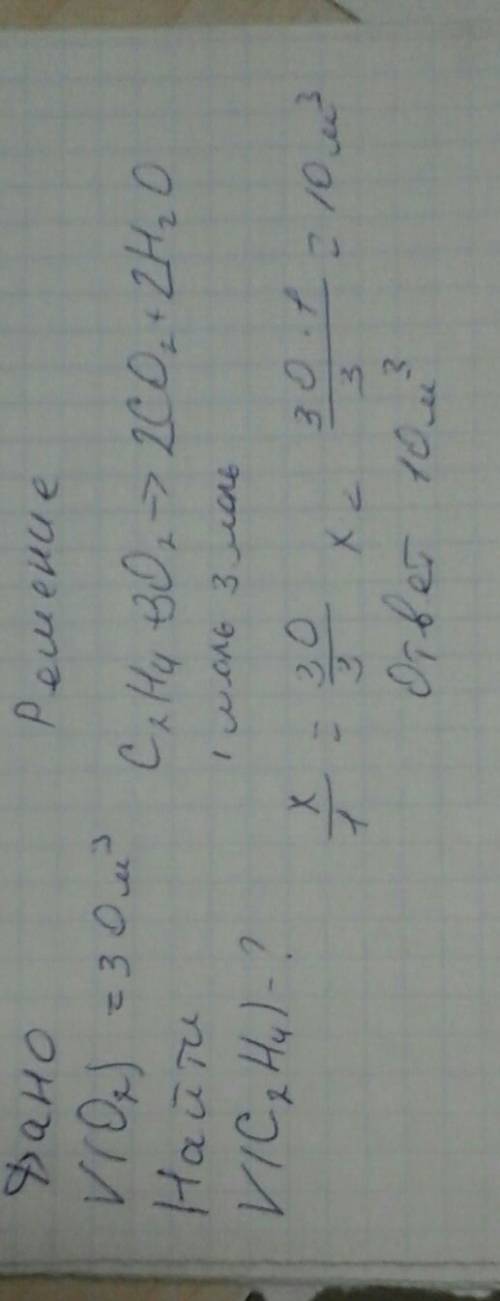 Дано
V(O₂) = 30 м³
Найти
V(C₂H₄) - ?
Решение
C₂H₄ + 3O₂ → 2CO₂ + 2H₂O
1 моль 3 моль
x/1 = 30/3 x = 30·1/3 = 10 м³
Ответ 10 м³